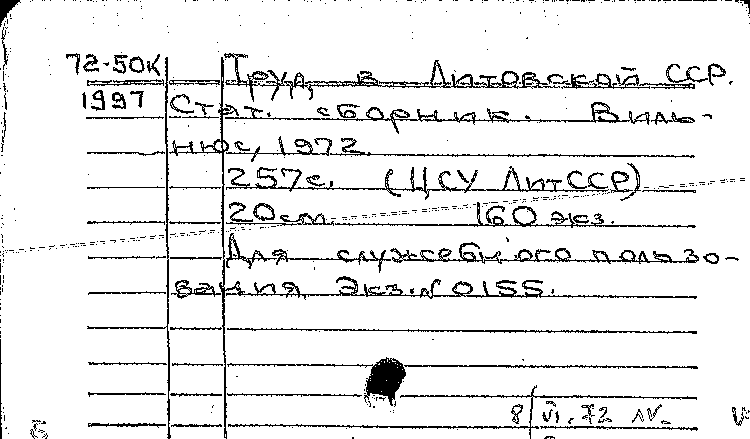 72-50К Труд в Литовской ССР.
1997 Стат. сборник. Виль-
нюс, 1972.
257с. (ЦСУ ЛитССР)
20см. 160 экз.
Для служебного пользо-
вания. Экз.№0155.
8 VI. 72
Б